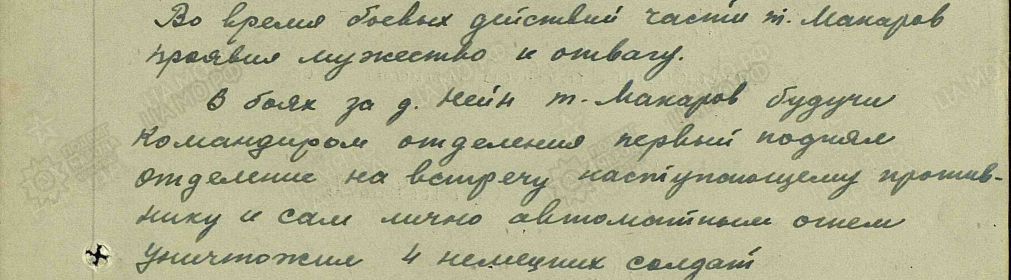 Во время боевых действий части т. Макаров
проявил мужество и отвагу.
В боях за д. Нейн т. Макаров будучи
командиром отделения первый поднял
отделение на встречу наступающему против-
нику и сам лично автоматным огнем
уничтожил 4 немецких солдат